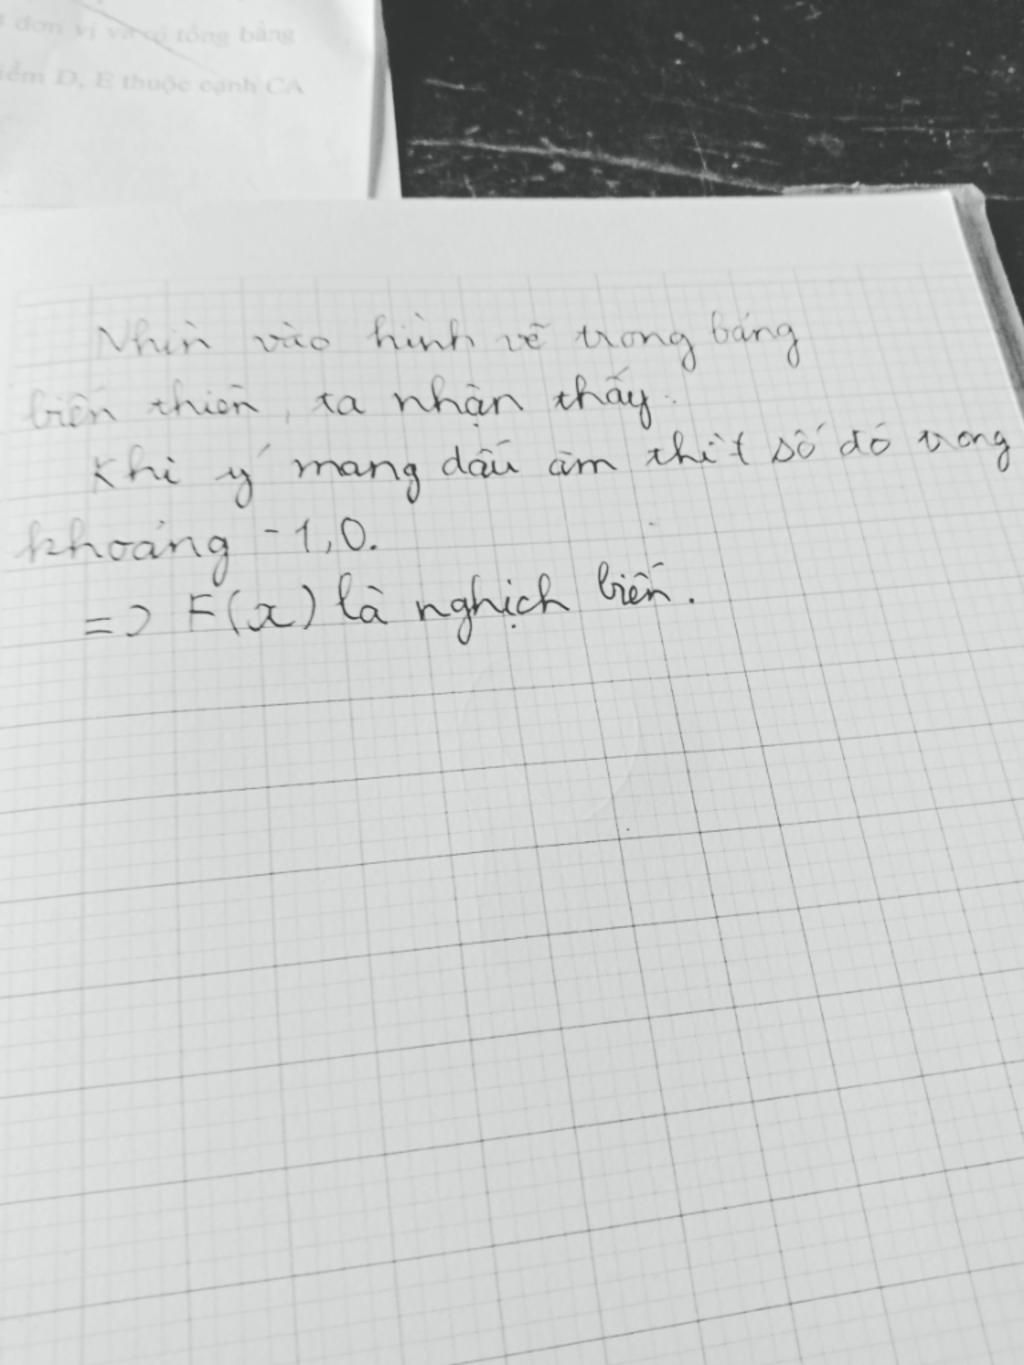 đơn vị và có tổng bằng
điểm D, E thuộc cạnh CA
Nhìn vào hình vẽ trong bảng
biến thiên, ta nhận thấy:
Khi y' mang dấu âm thì số đó trong
khoảng -1,0.
=> F(x) là nghịch biến.